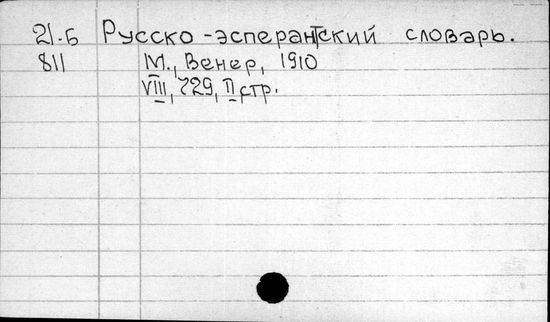 21.Б Русско-эсперантский словарь.
811 М., Венер, 1910
VIII, 729, II стр.